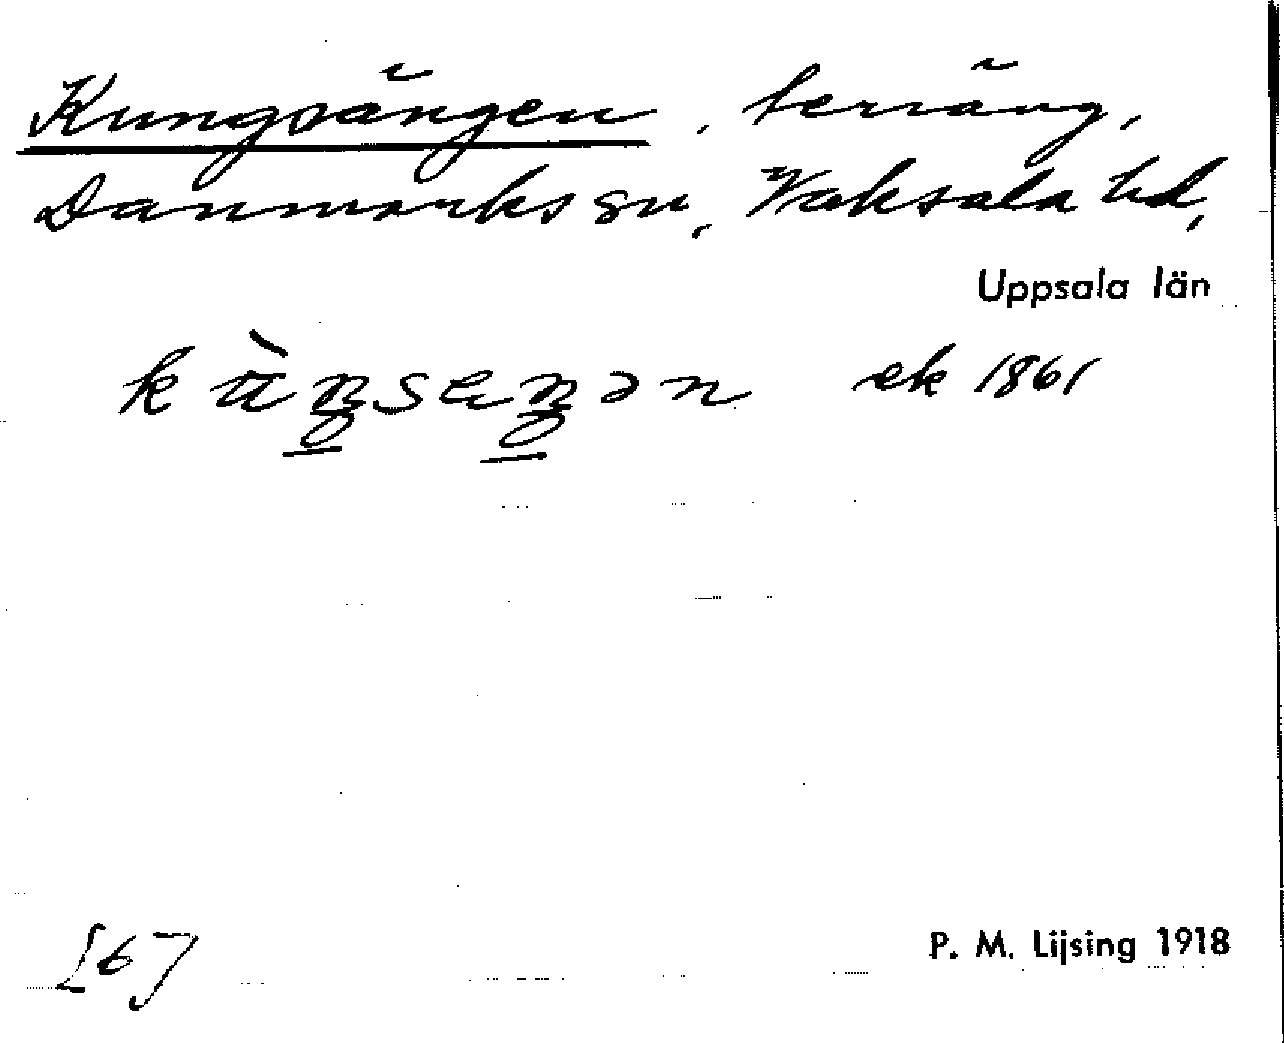 Kungsängen, terräng,
Danmarks sn, Vaksala hd,
Uppsala län
ek 1861
[6]
P. M. Lijsing 1918